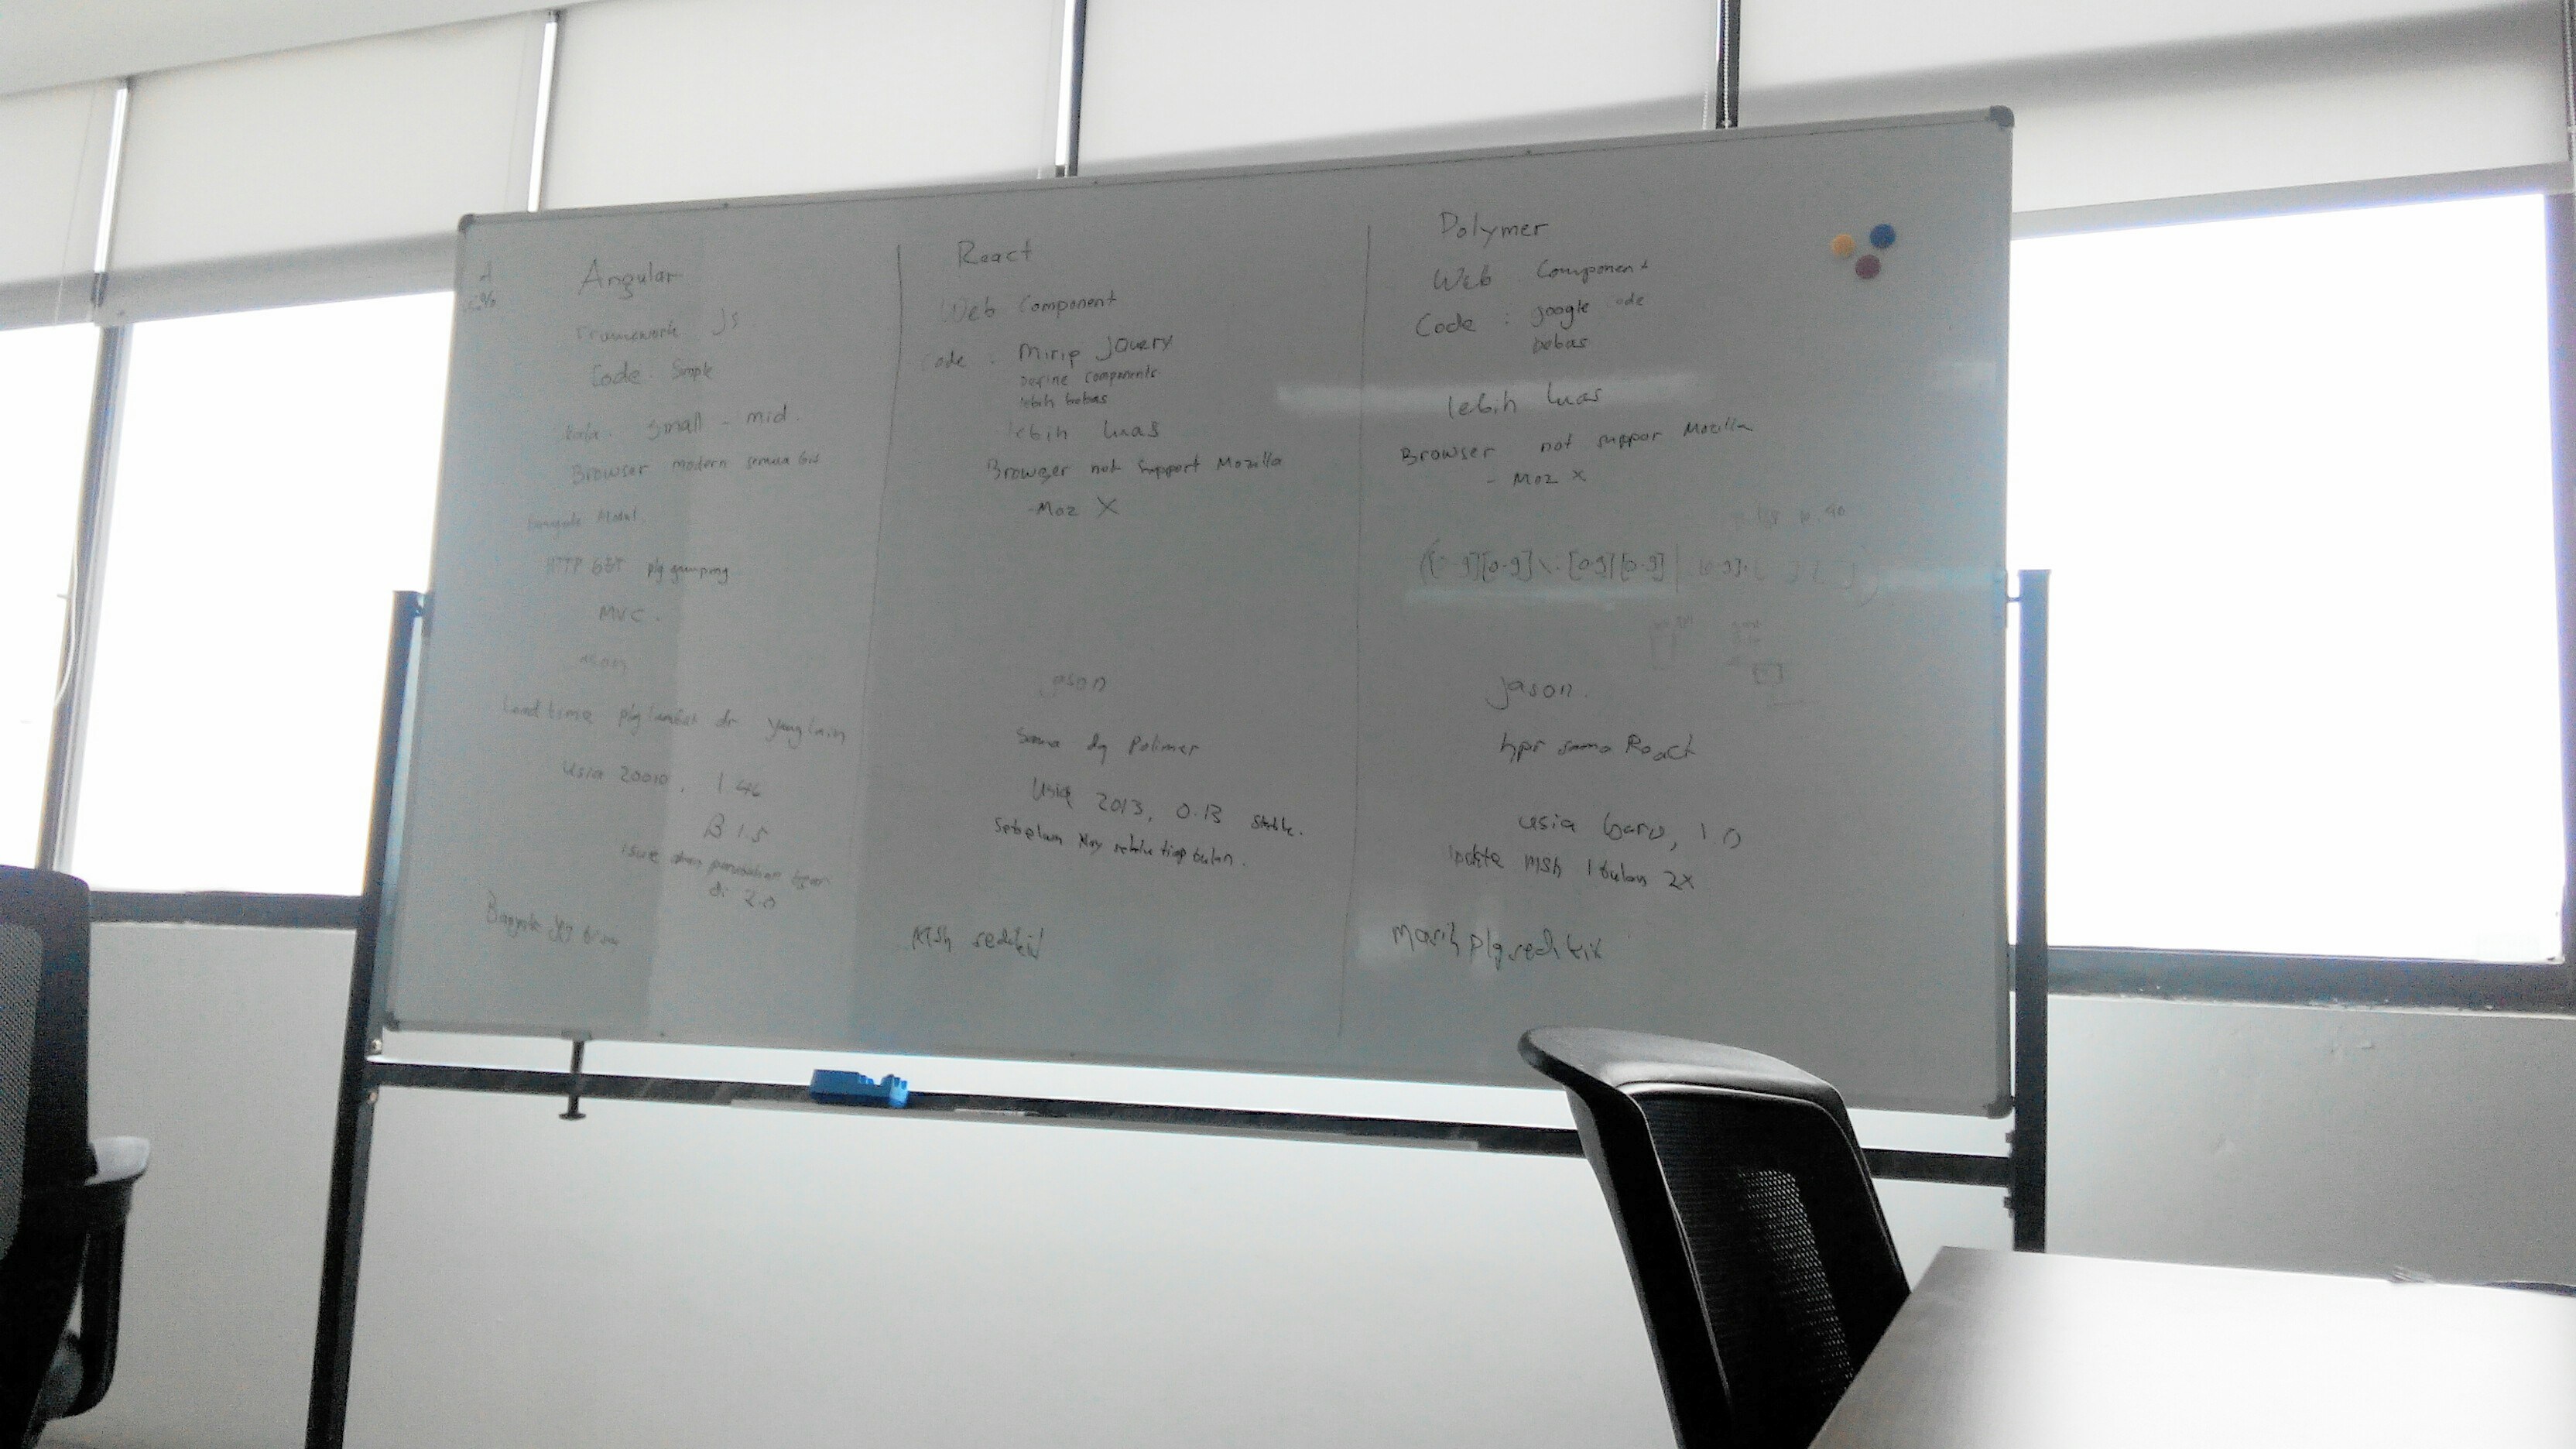 Angular
Framework JS
Code. Simple
small - mid.
Browser modern semua bis
HTTP GET plg gampang
MVC.
Load time plg lambat dr yang lain
Usia 20010, 1.4
β 1.5
Isue akan perubahan besar
di 2.0
Banyak yg bisa
React
Web Component
Code : Mirip JQuery
Define components
lebih bebas
lebih luas
Browser not support Mozilla
-Moz X
jason
Sama dg Polimer
Usia 2013, 0.13 stable.
Sebelum May tiap bulan.
Msh sedikit
Polymer
Web Component
Code : google code
bebas
lebih luas
Browser not suppor Mozilla
- Moz x
jason.
hpr sama React
usia baru, 1.0
Update msh 1 bulan 2x
Masih plg sedikit